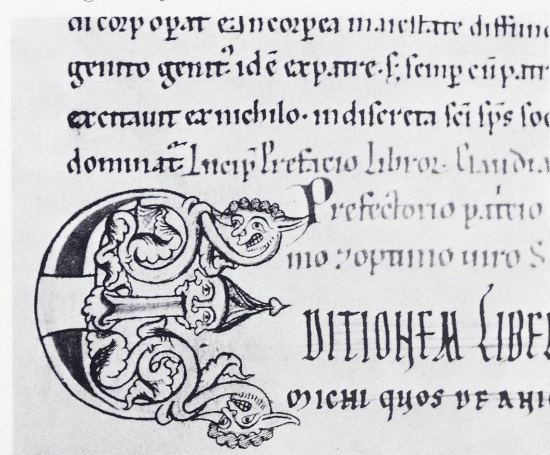 corp opat & incorpea maiestate diffun
genito genit idē expatre · s; semp cū patr
excitauit exnichilo · indiscreta sc̄i sp̄s soc
dominat Incip Prefacio libror Claudia
Prefectorio patricio
mo ⁊ optimo uiro S
EDITIONEM LIBEL
MICHI QUOS DE ANI